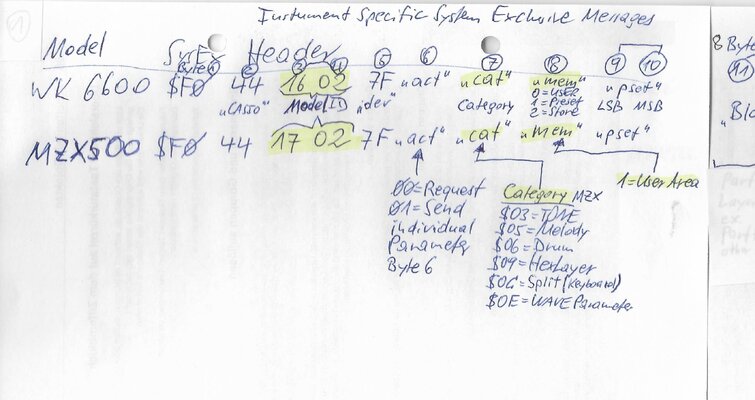 1
Instrument Specific System Exclusive Messages
Model SysEx Header
Byte 1 2 3 4 5 6 7 8 9 10
8 Byte
11
WK 6600 $F0 44 16 02 7F "act" "cat" "mem" "pset"
"Blo
"CASIO" Model ID "dev" Category 0=USER LSB MSB
1=Preset
2=Store
MZX500 $F0 44 17 02 7F "act" "cat" "mem" "pset"
00=Request
01=Send
individual
Parameter
Byte 6
Category MZX
$03=TONE
$05=Melody
$06=Drum
$09=HexLayer
$0C=Split (Keyboard)
$0E=WAVE Parameter
1=User Area